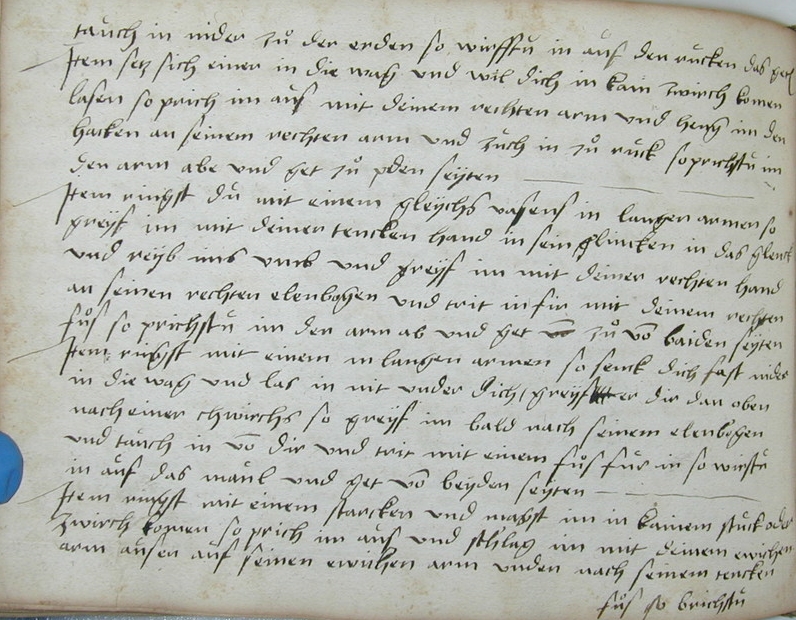 tauch in nider zů der erden so wirfftu in auf den rucken das
Item setz sich einer in die wag und wil dich in kain zwirch komen
lasen so prich im auf mit deinem rechten arm und heng im den
hacken an seinem rechten arm und zuch in zů ruck so prichstu im
den arm abe und get zů peden seyten
Item ringst du mit einem gleychs vasens in langen armen so
greyf im mit deiner tencken hand in sein glincken in das glenck
und reyb ims umb und greyf im mit deiner rechten hand
an seinen rechten elenbogen und trit in fir mit deinem rechten
fůs so prichstu im den arm ab und get zů vō baiden seyten
Item ringst mit einem in langen armen so senck dich fast nider
in die wag und las in nit under dich greyft er dir dan oben
nach einer chwirchs so greyf im bald nach seinem elenbogen
und tauch in vō dir und trit mit einem fůs für in so wirfstu
in auf das maul und get vō beyden seyten
Item ringst mit einem starcken und magst im in kainem stuck oder
zwirch komen so prich im auf und schlag im mit deinem
arm ausen auf seinen arm unden nach seinem tencken
fůs so brichstu